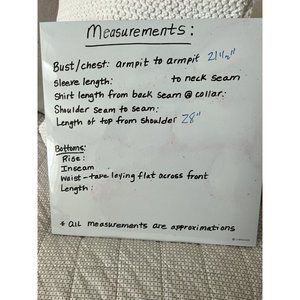 Measurements:
Bust/chest: armpit to armpit 21 1/2"
Sleeve length: to neck seam
Shirt length from back seam @ collar:
Shoulder seam to seam:
Length of top from shoulder 28"
Bottoms:
Rise:
Inseam
Waist - tape laying flat across front
Length:
* all measurements are approximations